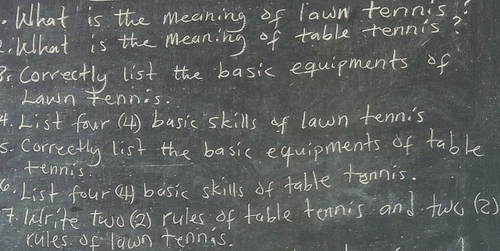 . What is the meaning of lawn tennis?
2. What is the Meaning of table tennis?
3. Correctly list the basic equipments of
Lawn tennis.
4. List four (4) basic skills of lawn tennis
5. Correctly list the basic equipments of table
tennis.
6. List four (4) basic skills of table tennis.
7. Write two (2) rules of table tennis and two (2)
rules of lawn tennis.